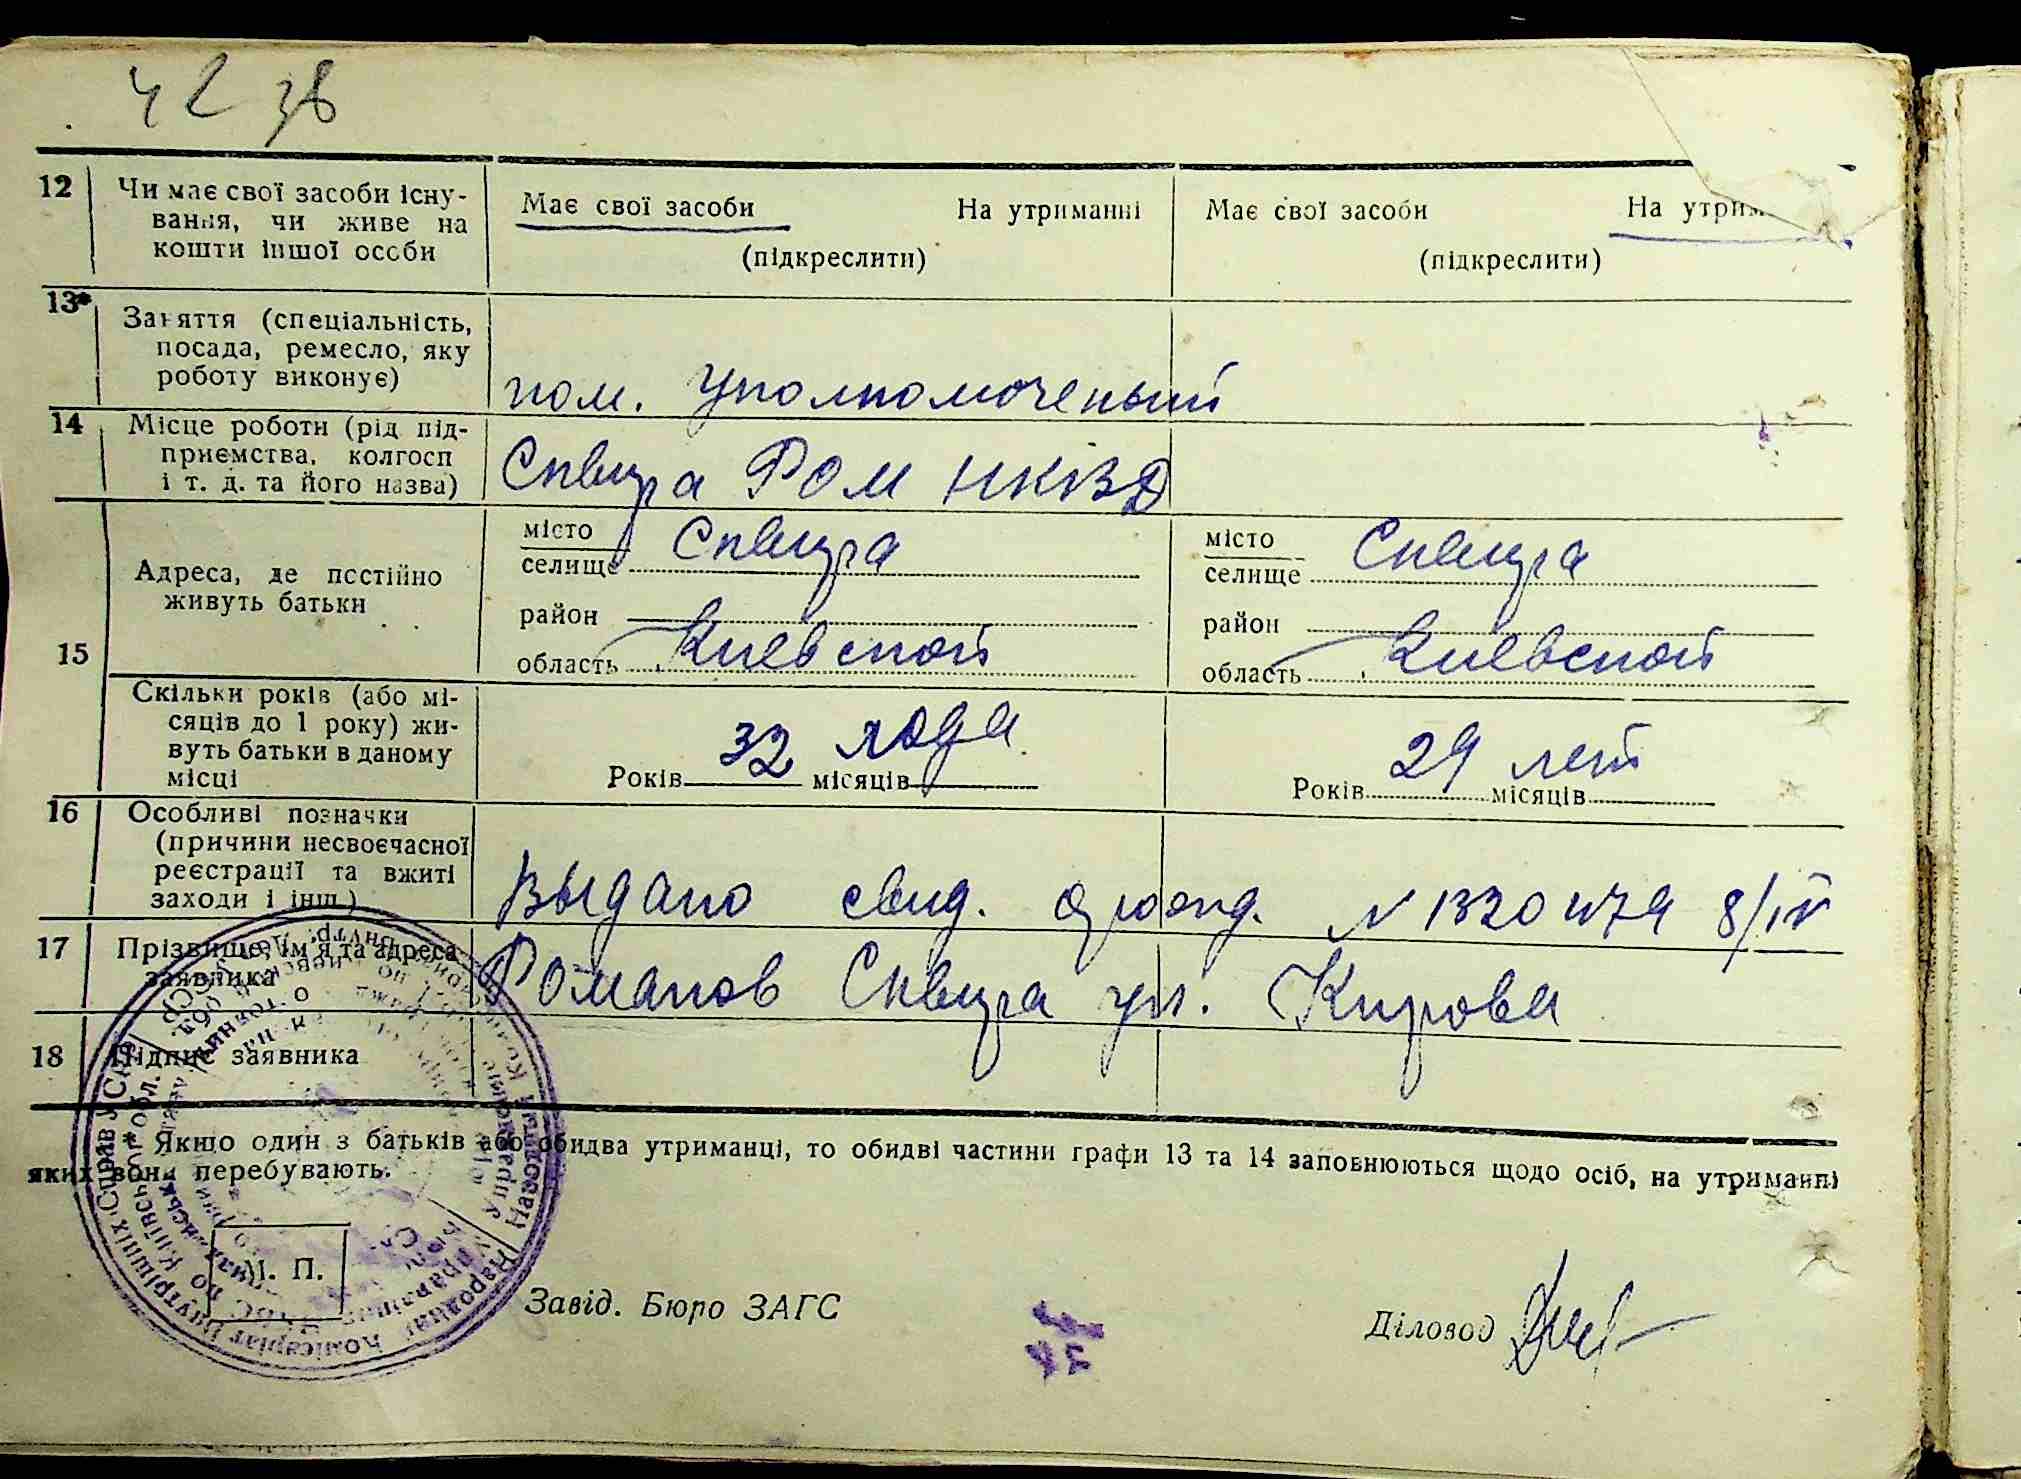 12 Чи має свої засоби існу-
вання, чи живе на
кошти іншої особи
Має свої засоби На утриманні
(підкреслити)
Має свої засоби На утрим
(підкреслити)
13* Заняття (спеціальність,
посада, ремесло, яку
роботу виконує)
пом. Уполномоченый
14 Місце роботи (рід під-
приємства, колгосп
і т. д. та його назва)
Сквира РОМ НКВД
15 Адреса, де постійно
живуть батьки
місто
селище Сквира
район
область Киевской
місто
селище Сквира
район
область Киевской
Скільки років (або мі-
сяців до 1 року) жи-
вуть батьки в даному
місці
Років 32 года місяців
Років 29 лет місяців
16 Особливі позначки
(причини несвоєчасної
реєстрації та вжиті
заходи і інш.)
Выдано свид. о рожд. N 1320479 8/IV
17 Прізвище, ім'я та адреса
заявника
Романов Сквира ул. Кирова
18 Підпис заявника
* Якщо один з батьків або обидва утриманці, то обидві частини графи 13 та 14 заповнюються щодо осіб, на утриманні
яких вони перебувають.
М. П.
Завід. Бюро ЗАГС
Діловод